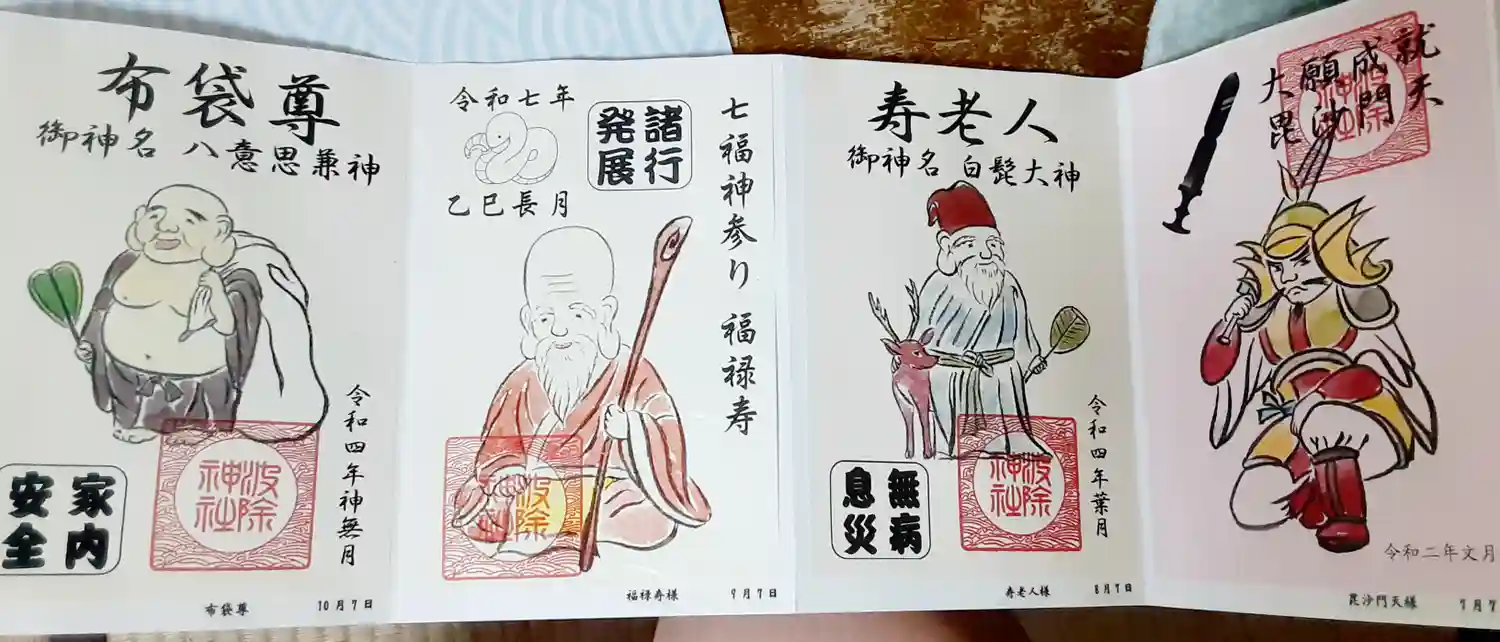 布袋尊
御神名 八意思兼神
令和四年神無月
家内
安全
波除
神社
布袋尊 10月7日
令和七年
乙巳長月
諸行
発展
七福神参り 福禄寿
波除
神社
福禄寿様 9月7日
寿老人
御神名 白髭大神
令和四年葉月
無病
息災
波除
神社
寿老人様 8月7日
大願成就
毘沙門天
波除
神社
令和二年文月
毘沙門天様 7月7